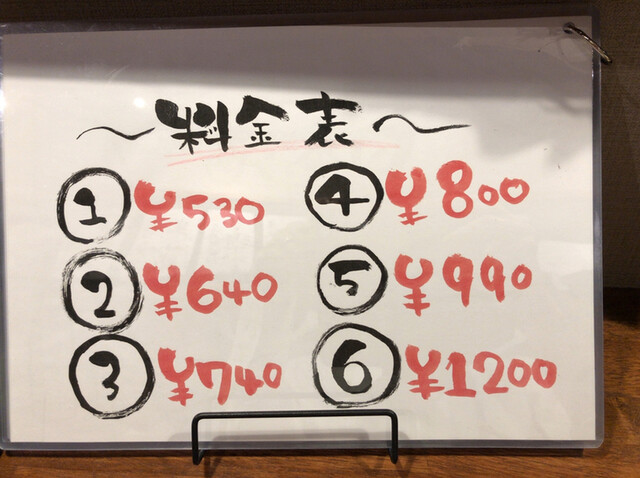 〜料金表〜
① ¥530
② ¥640
③ ¥740
④ ¥800
⑤ ¥990
⑥ ¥1200